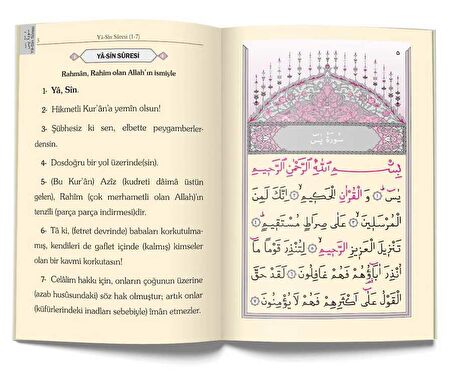 Yâ-Sîn Sûresi (1-7)
YÂ-SÎN SÛRESİ
Rahmân, Rahîm olan Allah'ın ismiyle
1- Yâ, Sîn.
2- Hikmetli Kur'ân'a yemîn olsun!
3- Şübhesiz ki sen, elbette peygamberler-
densin.
4- Dosdoğru bir yol üzerinde(sin).
5- (Bu Kur'ân) Azîz (kudreti dâimâ üstün
gelen), Rahîm (çok merhametli olan) Allah'ın
tenzîli (parça parça indirmesi)dir.
6- Tâ ki, (fetret devrinde) babaları korkutulma-
mış, kendileri de gaflet içinde (kalmış) kimseler
olan bir kavmi korkutasın!
7- Celâlim hakkı için, onların çoğunun üzerine
(azab husûsundaki) söz hak olmuştur; artık onlar
(küfürlerindeki inadları sebebiyle) îmân etmezler.
٥
سورة يس
بِسْمِ اللّٰهِ الرَّحْمٰنِ الرَّحِيمِ
يٰسٓ ﴿١﴾ وَالْقُرْاٰنِ الْحَكِيمِ ﴿٢﴾ اِنَّكَ لَمِنَ
الْمُرْسَلِينَ ﴿٣﴾ عَلٰى صِرَاطٍ مُسْتَقِيمٍ ﴿٤﴾
تَنْزِيلَ الْعَزِيزِ الرَّحِيمِ ﴿٥﴾ لِتُنْذِرَ قَوْمًا مَٓا
اُنْذِرَ اٰبَٓاؤُ۬هُمْ فَهُمْ غَافِلُونَ ﴿٦﴾ لَقَدْ حَقَّ
الْقَوْلُ عَلٰٓى اَكْثَرِهِمْ فَهُمْ لَا يُؤْمِنُونَ ﴿٧﴾